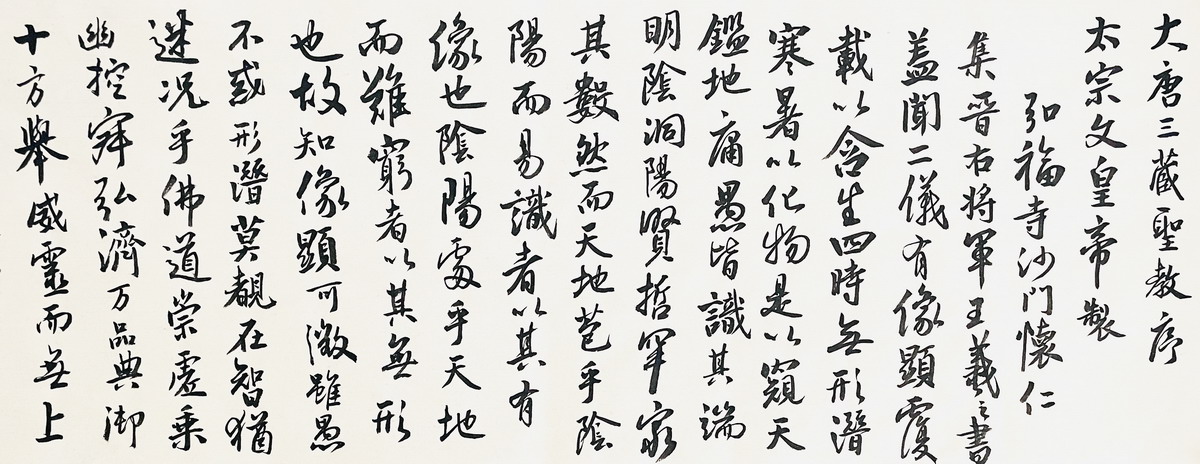 大唐三藏聖教序
太宗文皇帝製
弘福寺沙門懷仁
集晉右將軍王羲之書
蓋聞二儀有像顯覆
載以含生四時無形潛
寒暑以化物是以窺天
鑑地庸愚皆識其端
明陰洞陽賢哲罕窮
其數然而天地苞乎陰
陽而易識者以其有
像也陰陽處乎天地
而難窮者以其無形
也故知像顯可徵雖愚
不惑形潛莫覩在智猶
迷況乎佛道崇虛乘
幽控寂弘濟万品典御
十方舉威靈而無上